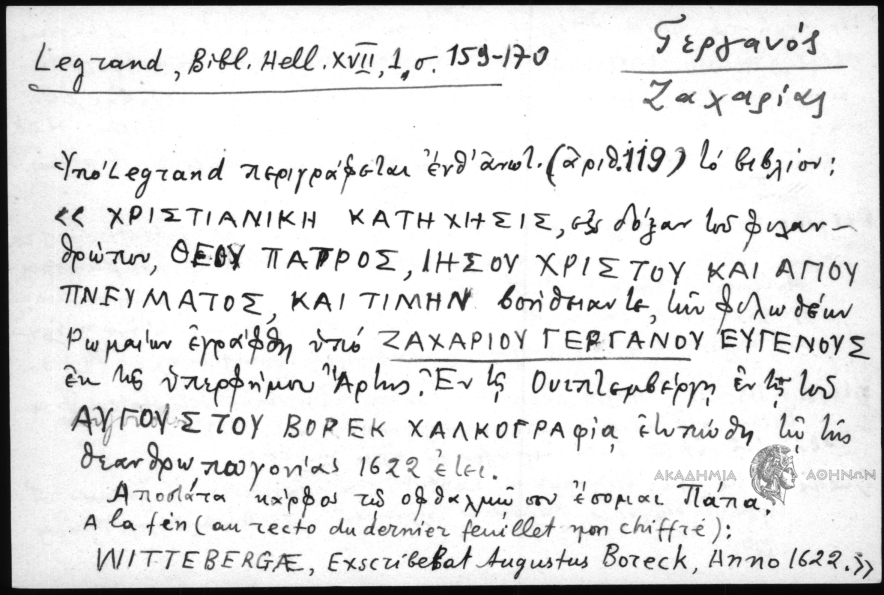 Legrand, Bibl. Hell. XVII, 1, σ. 159-170
Γεργανός
Ζαχαρίας
Ὑπὸ Legrand περιγράφεται ἐνθ' ἀνωτ. (ἀριθ. 119) τὸ βιβλίον:
«ΧΡΙΣΤΙΑΝΙΚΗ ΚΑΤΗΧΗΣΙΣ, εἰς δόξαν τοῦ φιλαν-
θρώπου, ΘΕΟΥ ΠΑΤΡΟΣ, ΙΗΣΟΥ ΧΡΙΣΤΟΥ ΚΑΙ ΑΓΙΟΥ
ΠΝΕΥΜΑΤΟΣ, ΚΑΙ ΤΙΜΗΝ βοήθειαν τε, τῶν φιλωθέων
Ρωμαίων ἐγράφθη ὑπὸ ΖΑΧΑΡΙΟΥ ΓΕΡΓΑΝΟΥ ΕΥΓΕΝΟΥΣ
ἐκ τῆς ὑπερφήμου Ἄρτης. Ἐν τῇ Ουιπτεμβέργῃ ἐν τῇ τοῦ
ΑΥΓΟΥΣΤΟΥ ΒΟΡΕΚ ΧΑΛΚΟΓΡΑφίᾳ ἐτυπώθη τῷ τῆς
θεανθρωπογονίας 1622 ἔτει.
Αποστάτα κάρφος τῷ οφθαλμῷ σου ἔσομαι Πάπα.
A la fin (au recto du dernier feuillet non chiffré):
WITTEBERGÆ, Exscribebat Augustus Boreck, Anno 1622.»
ΑΚΑΔΗΜΙΑ ΑΘΗΝΩΝ